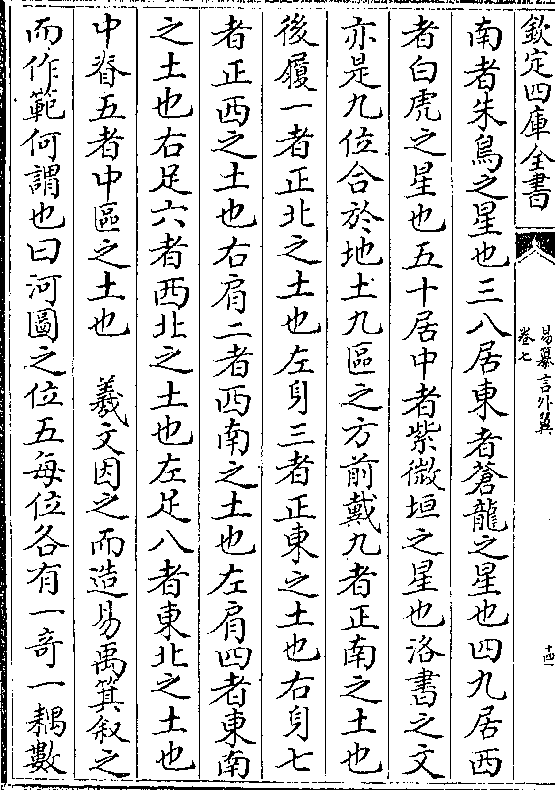 欽定四庫全書
易纂言外翼
卷七
十四
南者朱鳥之星也三八居東者蒼龍之星也四九居西
者白虎之星也五十居中者紫微垣之星也洛書之文
亦是九位合於地土九區之方前戴九者正南之土也
後履一者正北之土也左身三者正東之土也右身七
者正西之土也右肩二者西南之土也左肩四者東南
之土也右足六者西北之土也左足八者東北之土也
中脊五者中區之土也　羲文因之而造易禹箕叙之
而作範何謂也曰河圖之位五每位各有一竒一耦數